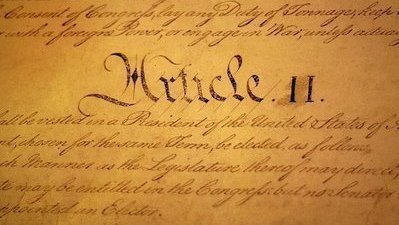 Consent of Congress, lay any Duty of Tonnage, keep
with a foreign Power, or engage in War, unless actua
Article. II.
all be vested in a President of the United States of A
nt, chosen for the same Term, be elected, as follow
ch Manner as the Legislature thereof may direct,
te may be entitled in the Congress: but no Senator
ppointed an Elector.